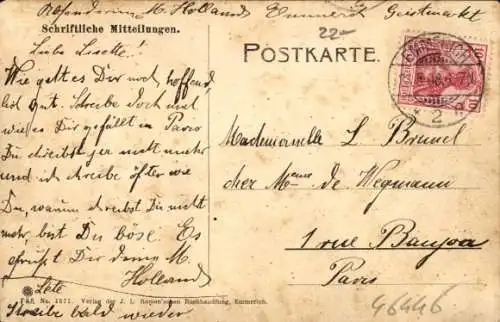 M. Holland Emmerich Geistmarkt
22-
Schriftliche Mitteilungen.
POSTKARTE.
Liebe Lisette!
Wie geht es Dir noch, hoffend
gut. Schreibe doch mal
wie es Dir gefällt in Paris
Du schreibst ja nicht mehr
und ich schreibe öfter wie
Du, warum schreibst Du nicht
mehr, bist Du böse. Es
grüßt Dir M.
Holland
Schreibe bald wieder
Mademoiselle L. Brunel
chez Mme de Wegmann
1 rue
Paris
46446
10
2
No. 1571. Verlag der J. L. Romen'schen Buchhandlung, Emmerich.